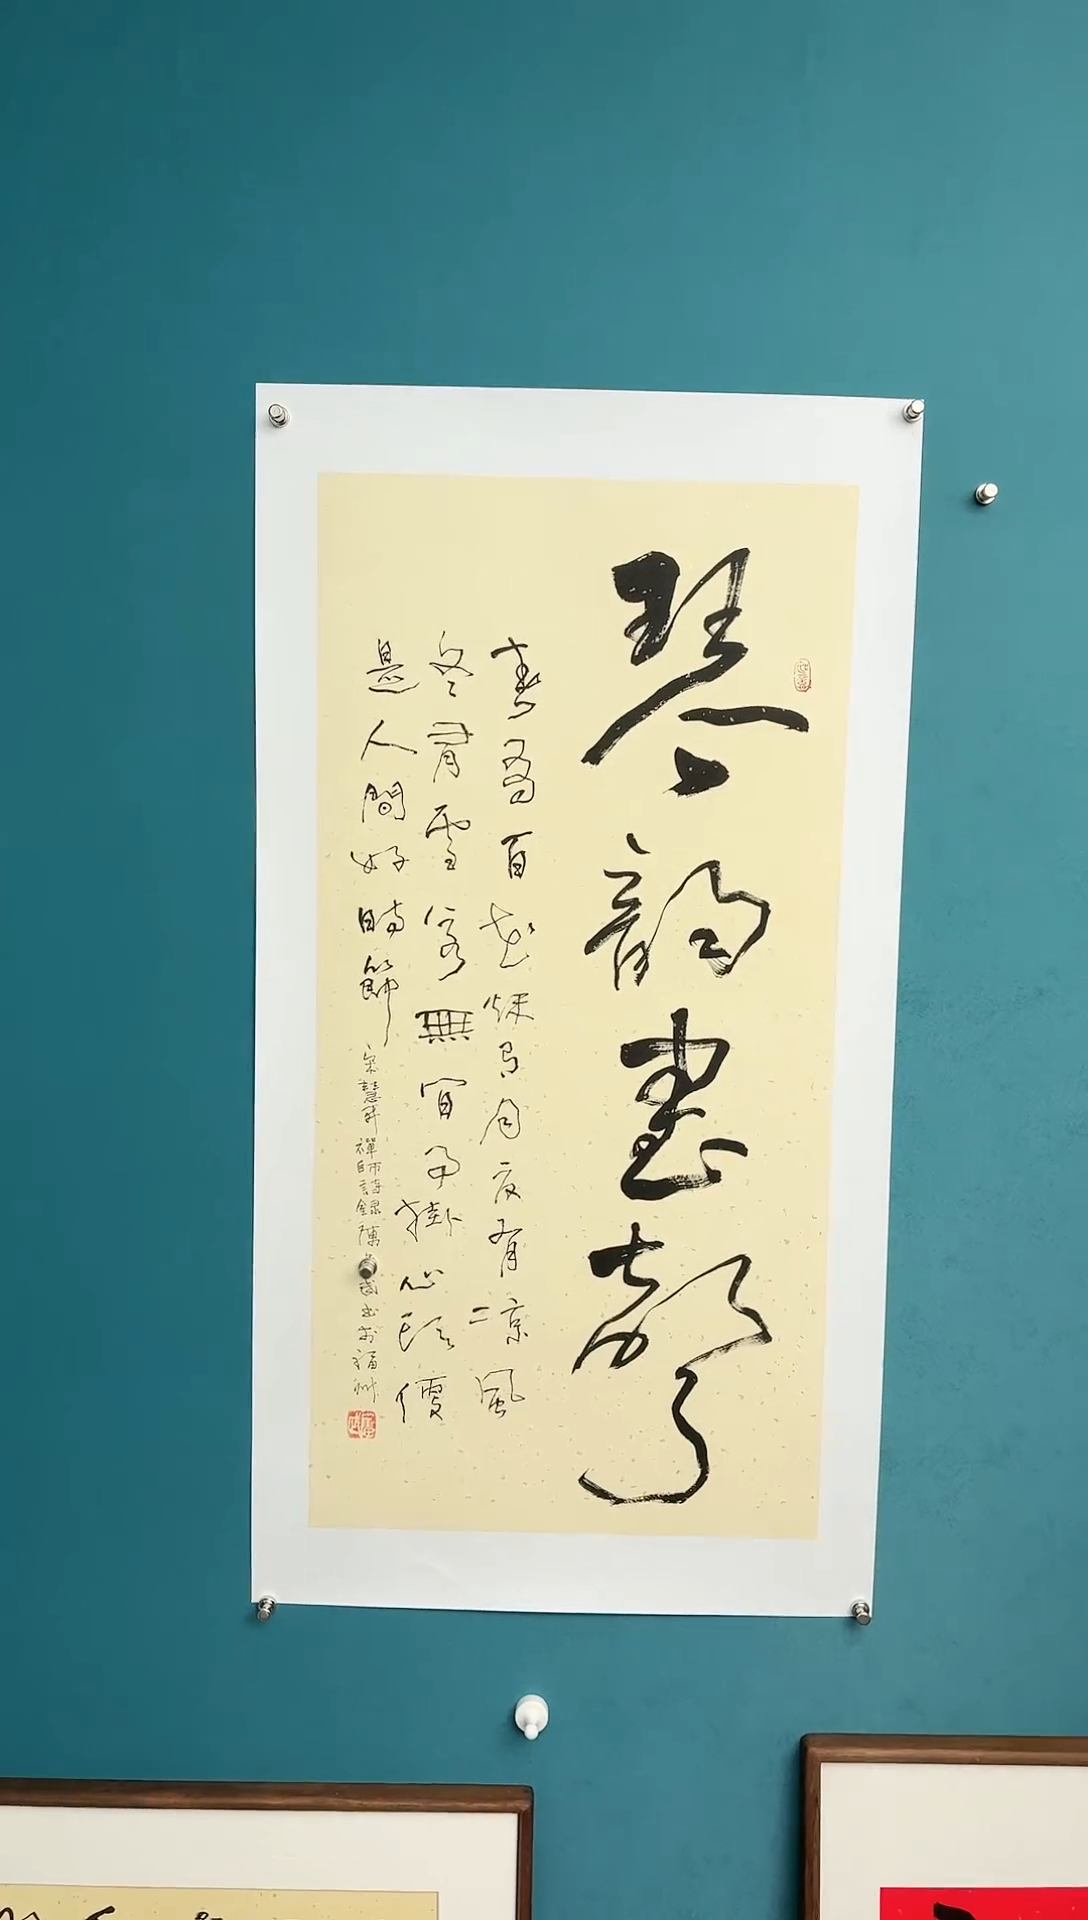 琴韻書聲
春有百花秋有月夏有涼風
冬有雪若無閒事掛心頭便
是人間好時節
宋慧開禪師詩錄陳書於福州